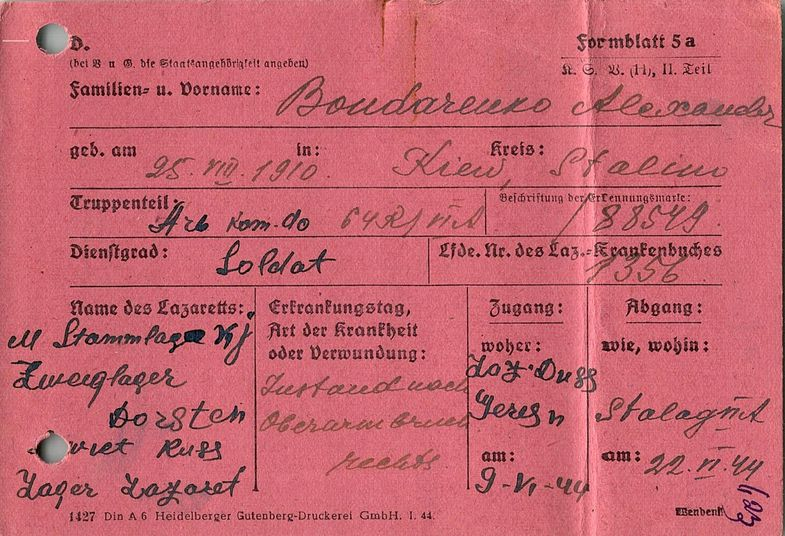 D. Formblatt 5a
(bei V u G. die Staatsangehörigkeit angeben) K. S. V. (11), II. Teil
Familien- u. Vorname: Bondarenko Alexander
geb. am 25. VIII. 1910 in: Kiew, Kreis: Stalino
Truppenteil: Arb Kom.do 64R/VIA Beschriftung der Erkennungsmarke: 188549
Dienstgrad: Soldat Lfde. Nr. des Laz.-Krankenbuches 1356
Name des Lazaretts:
M Stammlager VIJ
Zweiglager
Dorsten
Sowiet Russ
Lager Lazaret
Erkrankungstag,
Art der Krankheit
oder Verwundung:
Zustand nach
Oberarmbruch
rechts
Zugang:
woher:
Laz.
am:
9-VI-44
Abgang:
wie, wohin:
Stalag VIA
am: 22.VI.44
1427 Din A 6 Heidelberger Gutenberg-Druckerei GmbH. I. 44. Wenden!